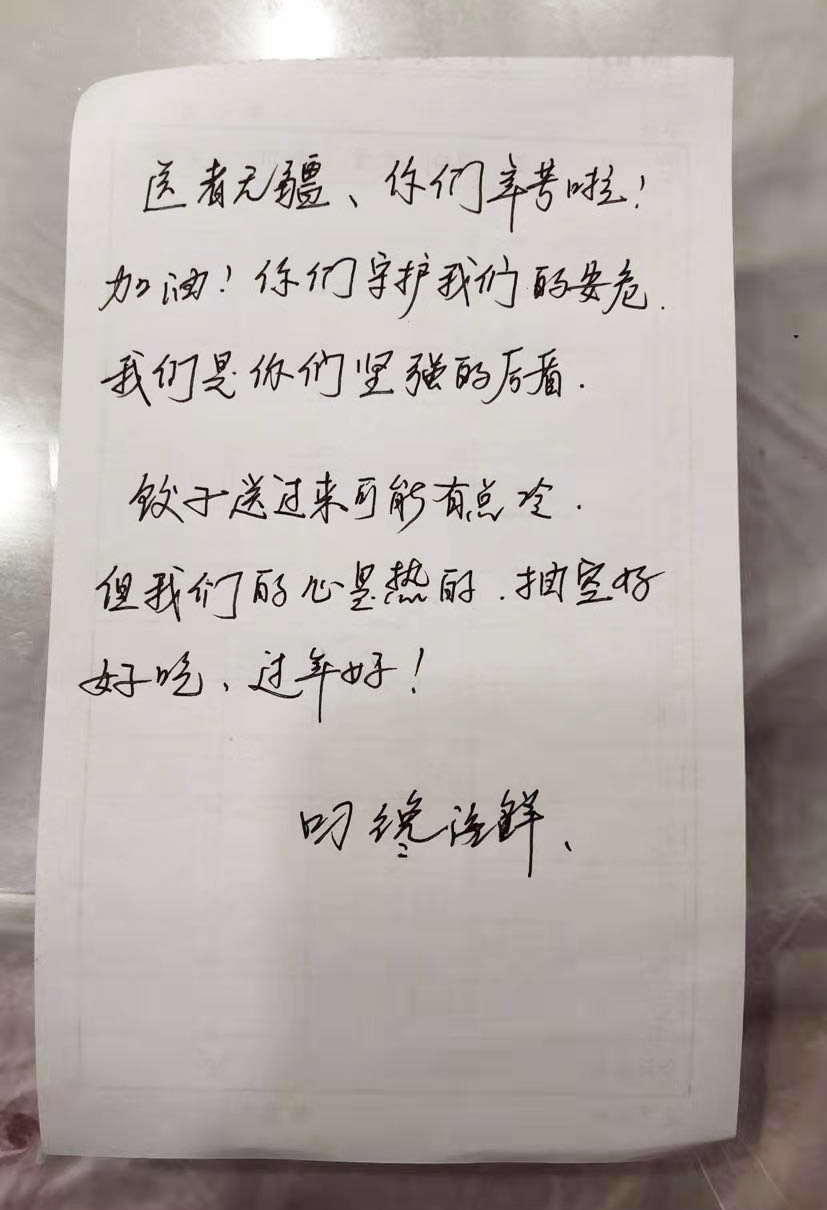 医者无疆、你们辛苦啦!
加油!你们守护我们的安危.
我们是你们坚强的后盾.
饺子送过来可能有点冷.
但我们的心是热的.抽空好
好吃、过年好!
叼馋海鲜、